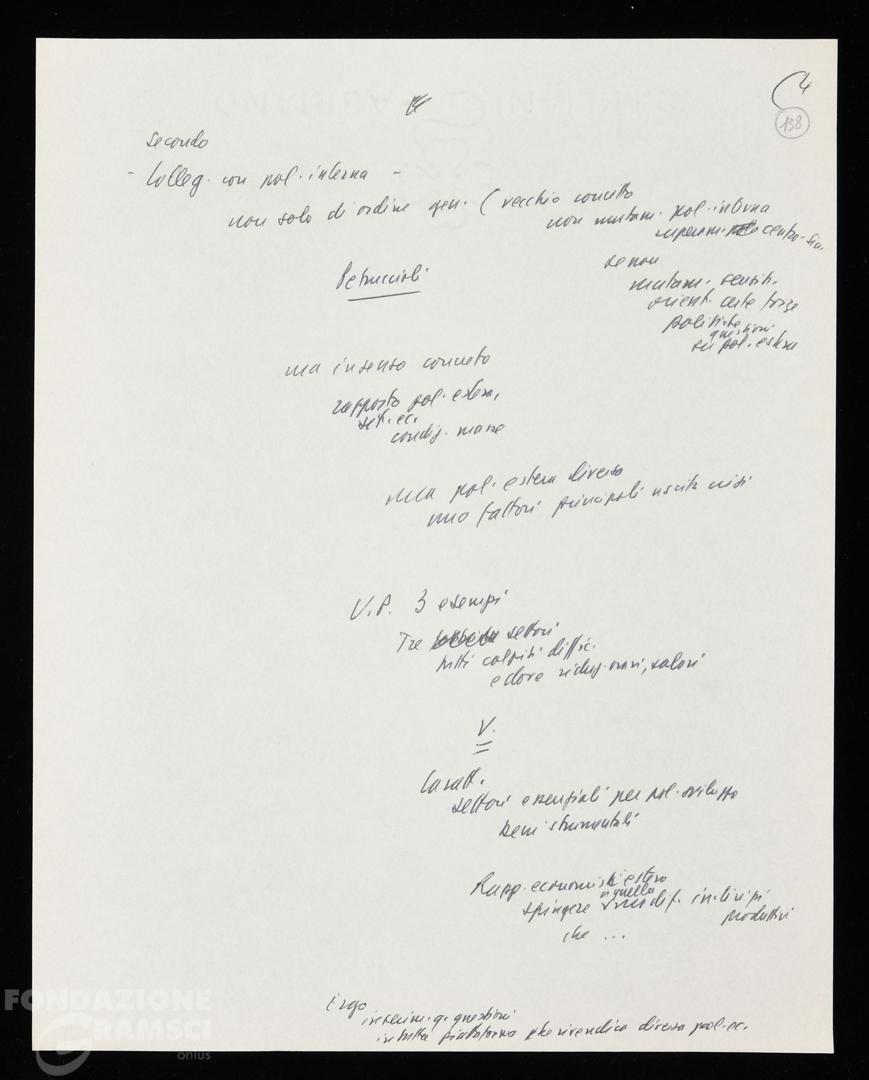 (4
138
secondo
- Colleg. con pol. interna -
non solo di ordine gen. (vecchio concetto
non mutam. pol. interna
centro-sin.
se non
mutam. sensib.
orient. certe forze
politiche
questioni
su pol. estera
Petruccioli
ma in senso concreto
rapporto pol. estera,
set. ec.
condiz. masse
una pol. estera diversa
uno fattori principali uscita crisi
V.P. 3 esempi
Tre settori
tutti colpiti diffic.
e dove riduz. orari, salari
V.
Caratt.
settori essenziali per pol. sviluppo
beni strumentali
Rapp. economici estero
a quella
spingere modif. indirizzi
produttivi
che ...
Ergo
inserim. q. questioni
in tutta piattaforma che rivendica diversa pol. ec.
FONDAZIONE
GRAMSCI
onlus